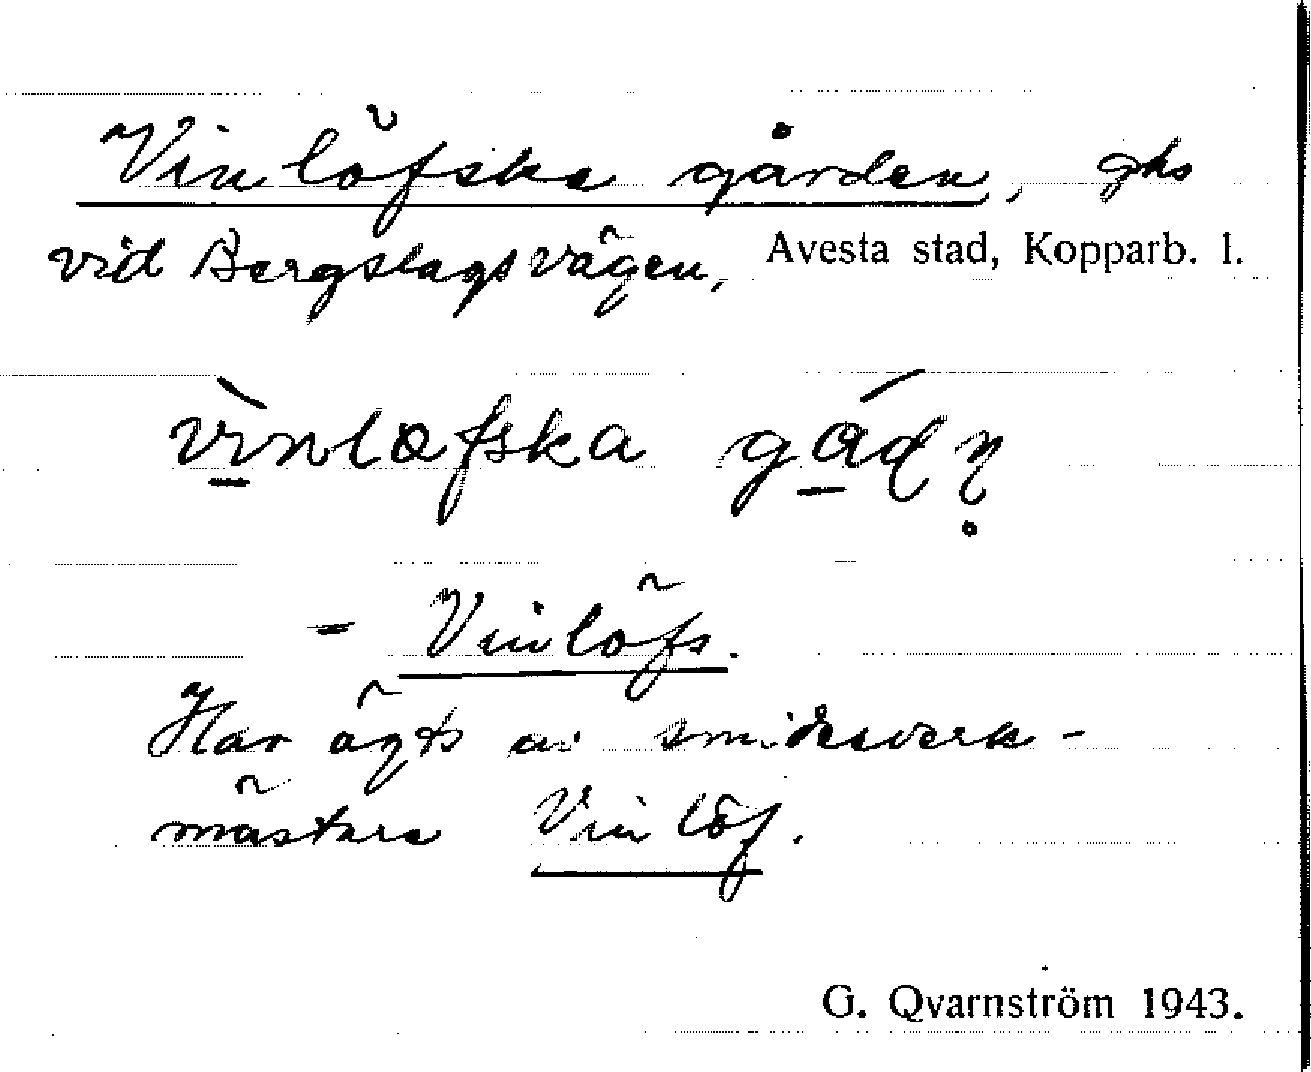 Vinlöfska gården, ghs
vid Bergslagsvägen, Avesta stad, Kopparb. l.
vìnlöfska gádn̥
= Vinlöfs.
Har ägts av smidesverk-
mästare Vinlöf.
G. Qvarnström 1943.